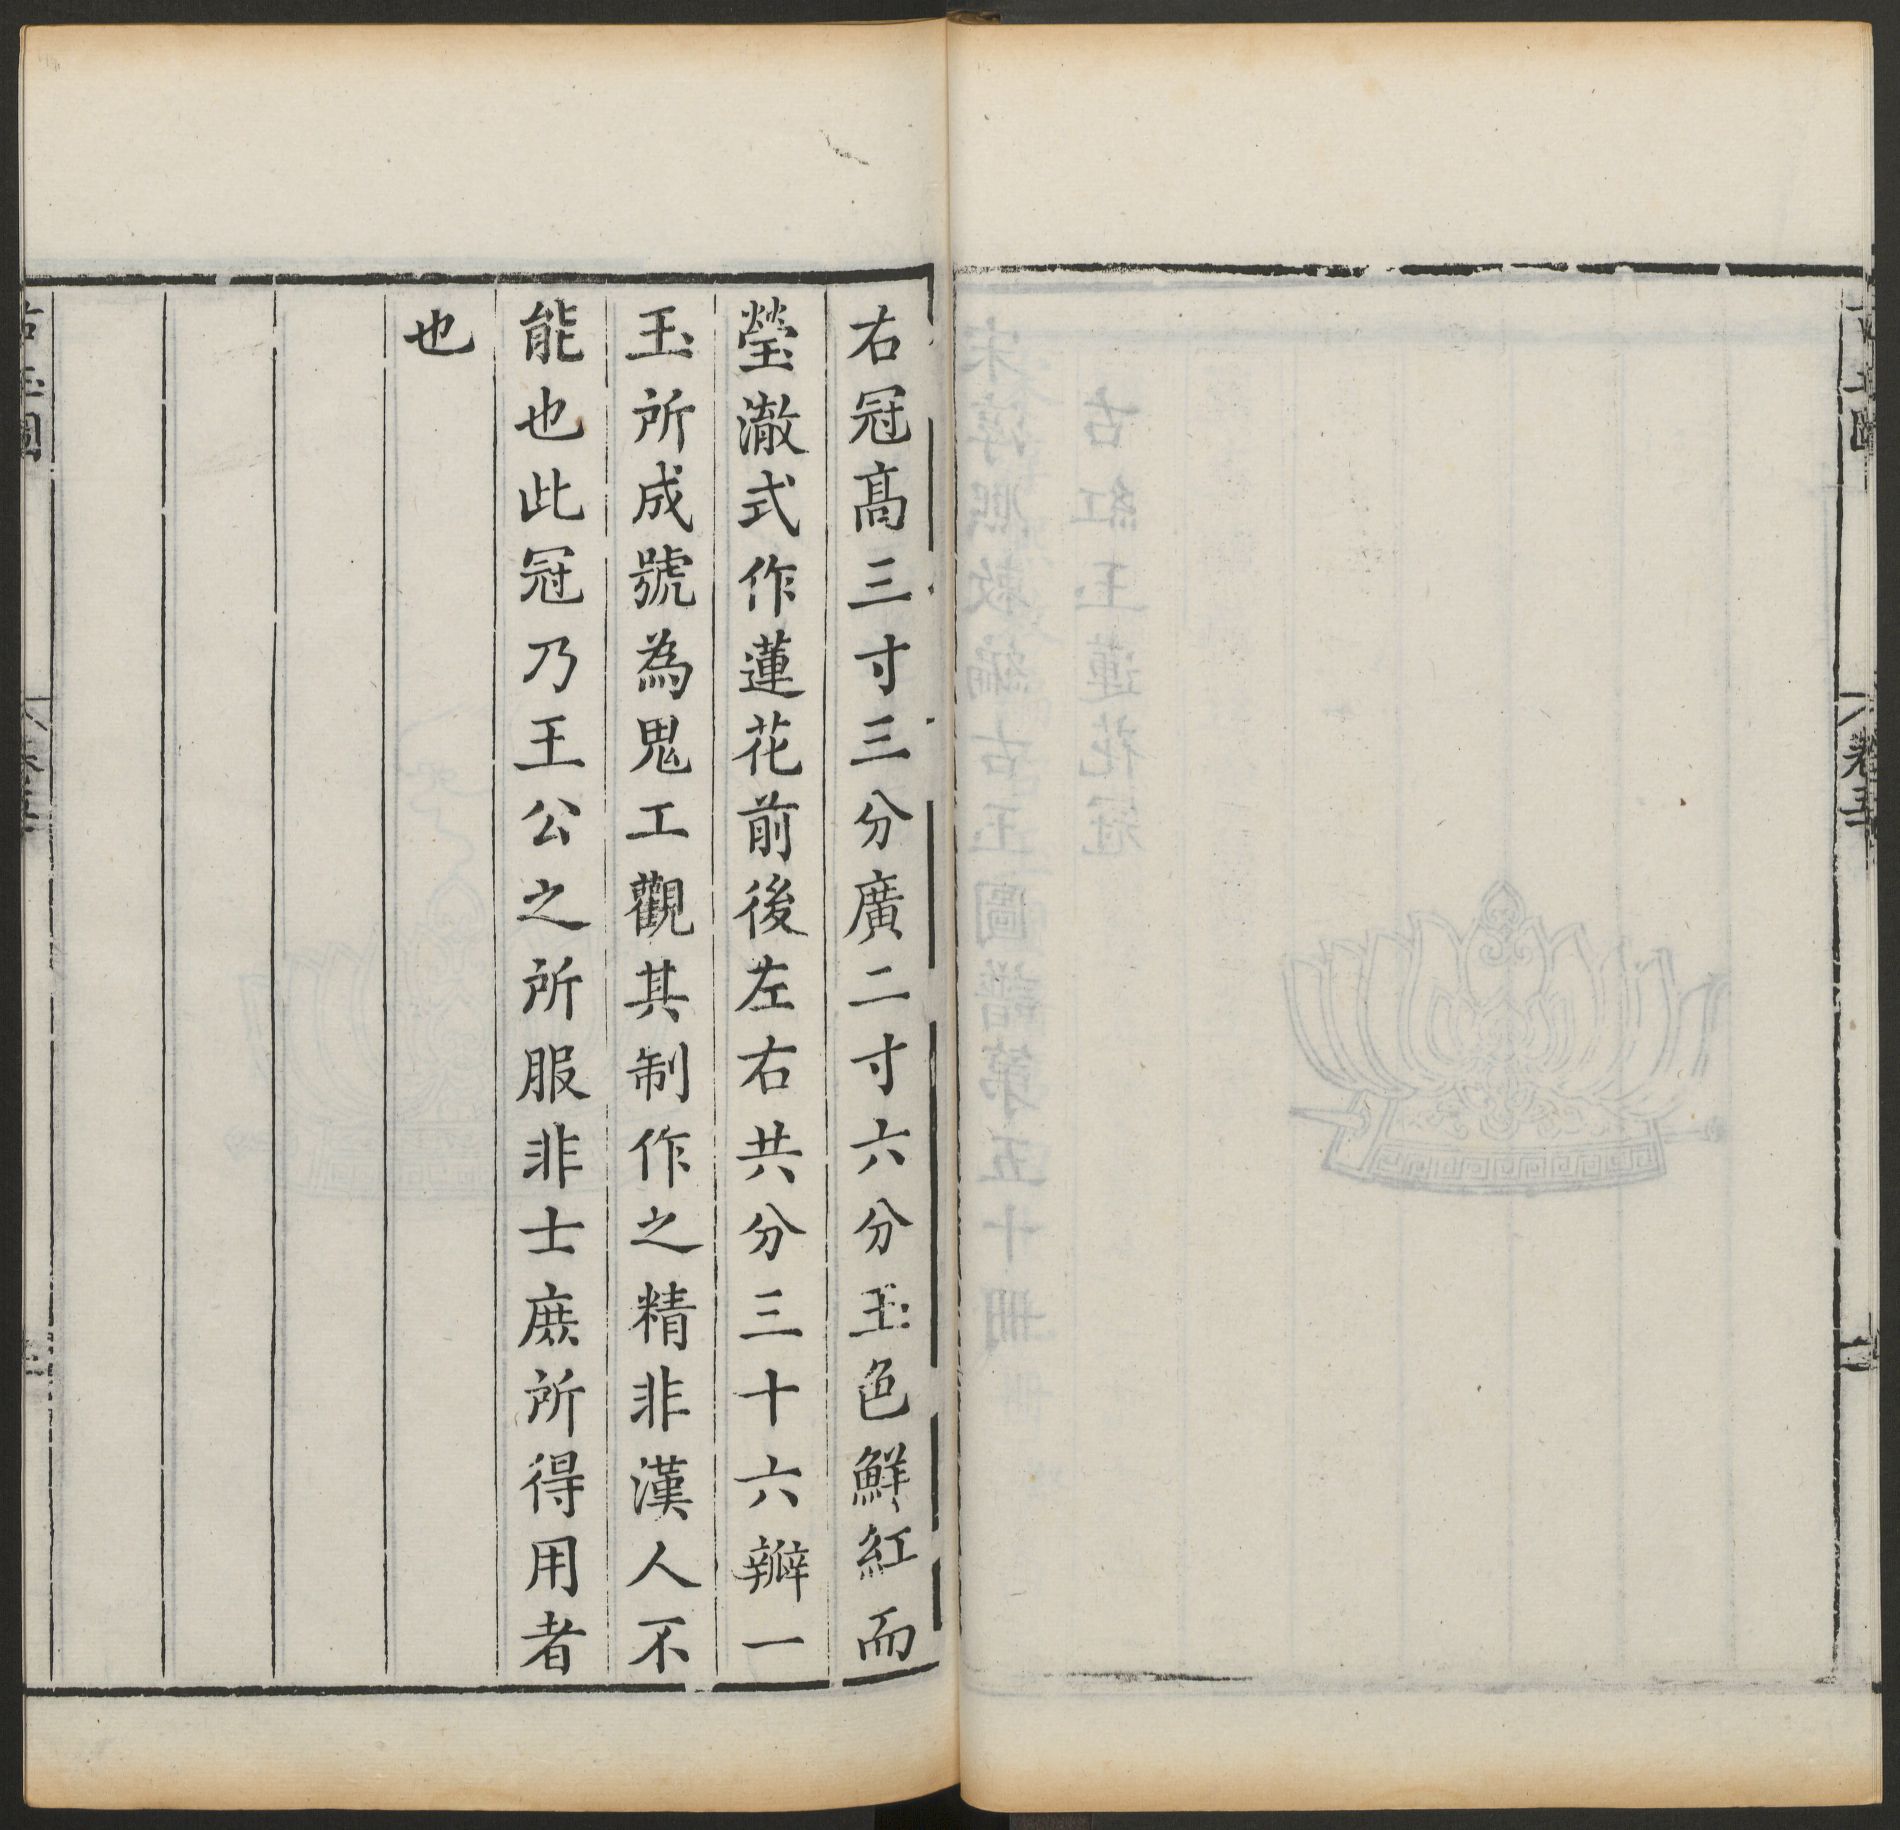 右冠高三寸三分廣二寸六分玉色鮮紅而
瑩澈式作蓮花前後左右共分三十六瓣一
玉所成號為鬼工觀其制作之精非漢人不
能也此冠乃王公之所服非士庶所得用者
也